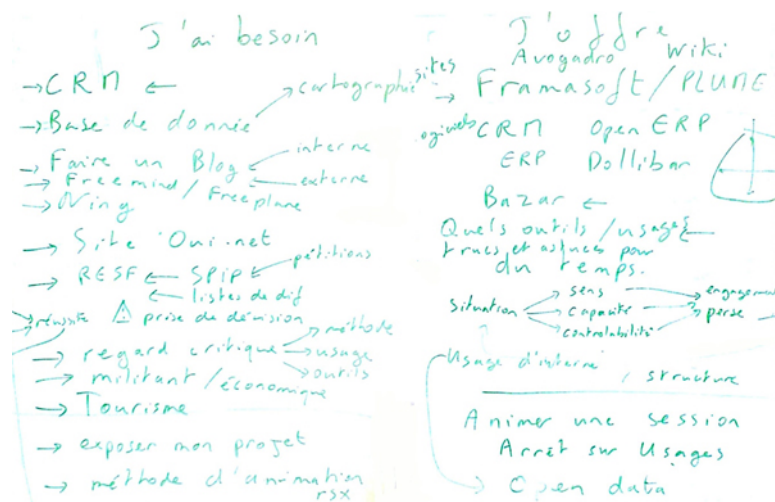 J'ai besoin
→ CRM ←
→ Base de donnée → cartographie
→ Faire un Blog ← interne
→ Freemind / Freeplane ← externe
→ Ning
→ Site Oui.net
→ RESF ← SPIP ← pétitions
← listes de dif
→ réussite ⚠ prise de démision
→ regard critique → méthode
→ usage
→ outils
→ militant / économique
→ Tourisme
→ exposer mon projet
→ méthode d'animation
rsx
J'offre
Avogadro Wiki
sites
→ Framasoft / PLUME
logiciels CRM Open ERP
ERP Dollibar
Bazar ←
Quels outils / usages ←
trucs et astuces pour
du temps.
situation → sens → engagement
→ capacité → perse
→ controlabilité
Usage d'interne
/ structure
Animer une session
Arrêt sur Usages
→ Open data